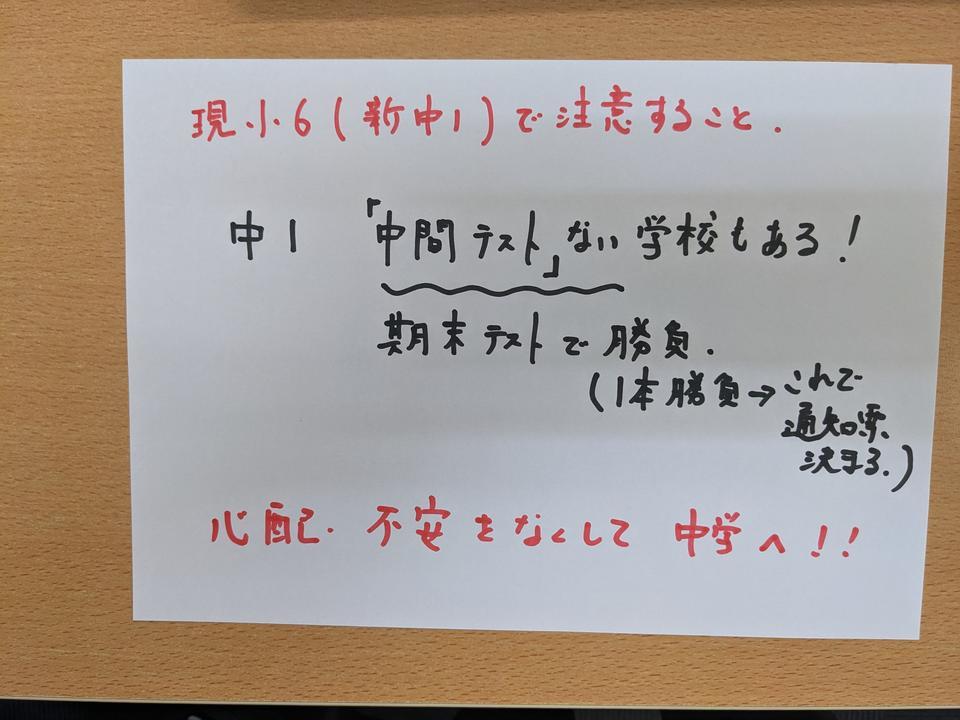 現小6(新中1)で注意すること.
中1 「中間テスト」ない学校もある!
期末テストで勝負.
(1本勝負→これで
通知票
決まる.)
心配・不安をなくして 中学へ!!